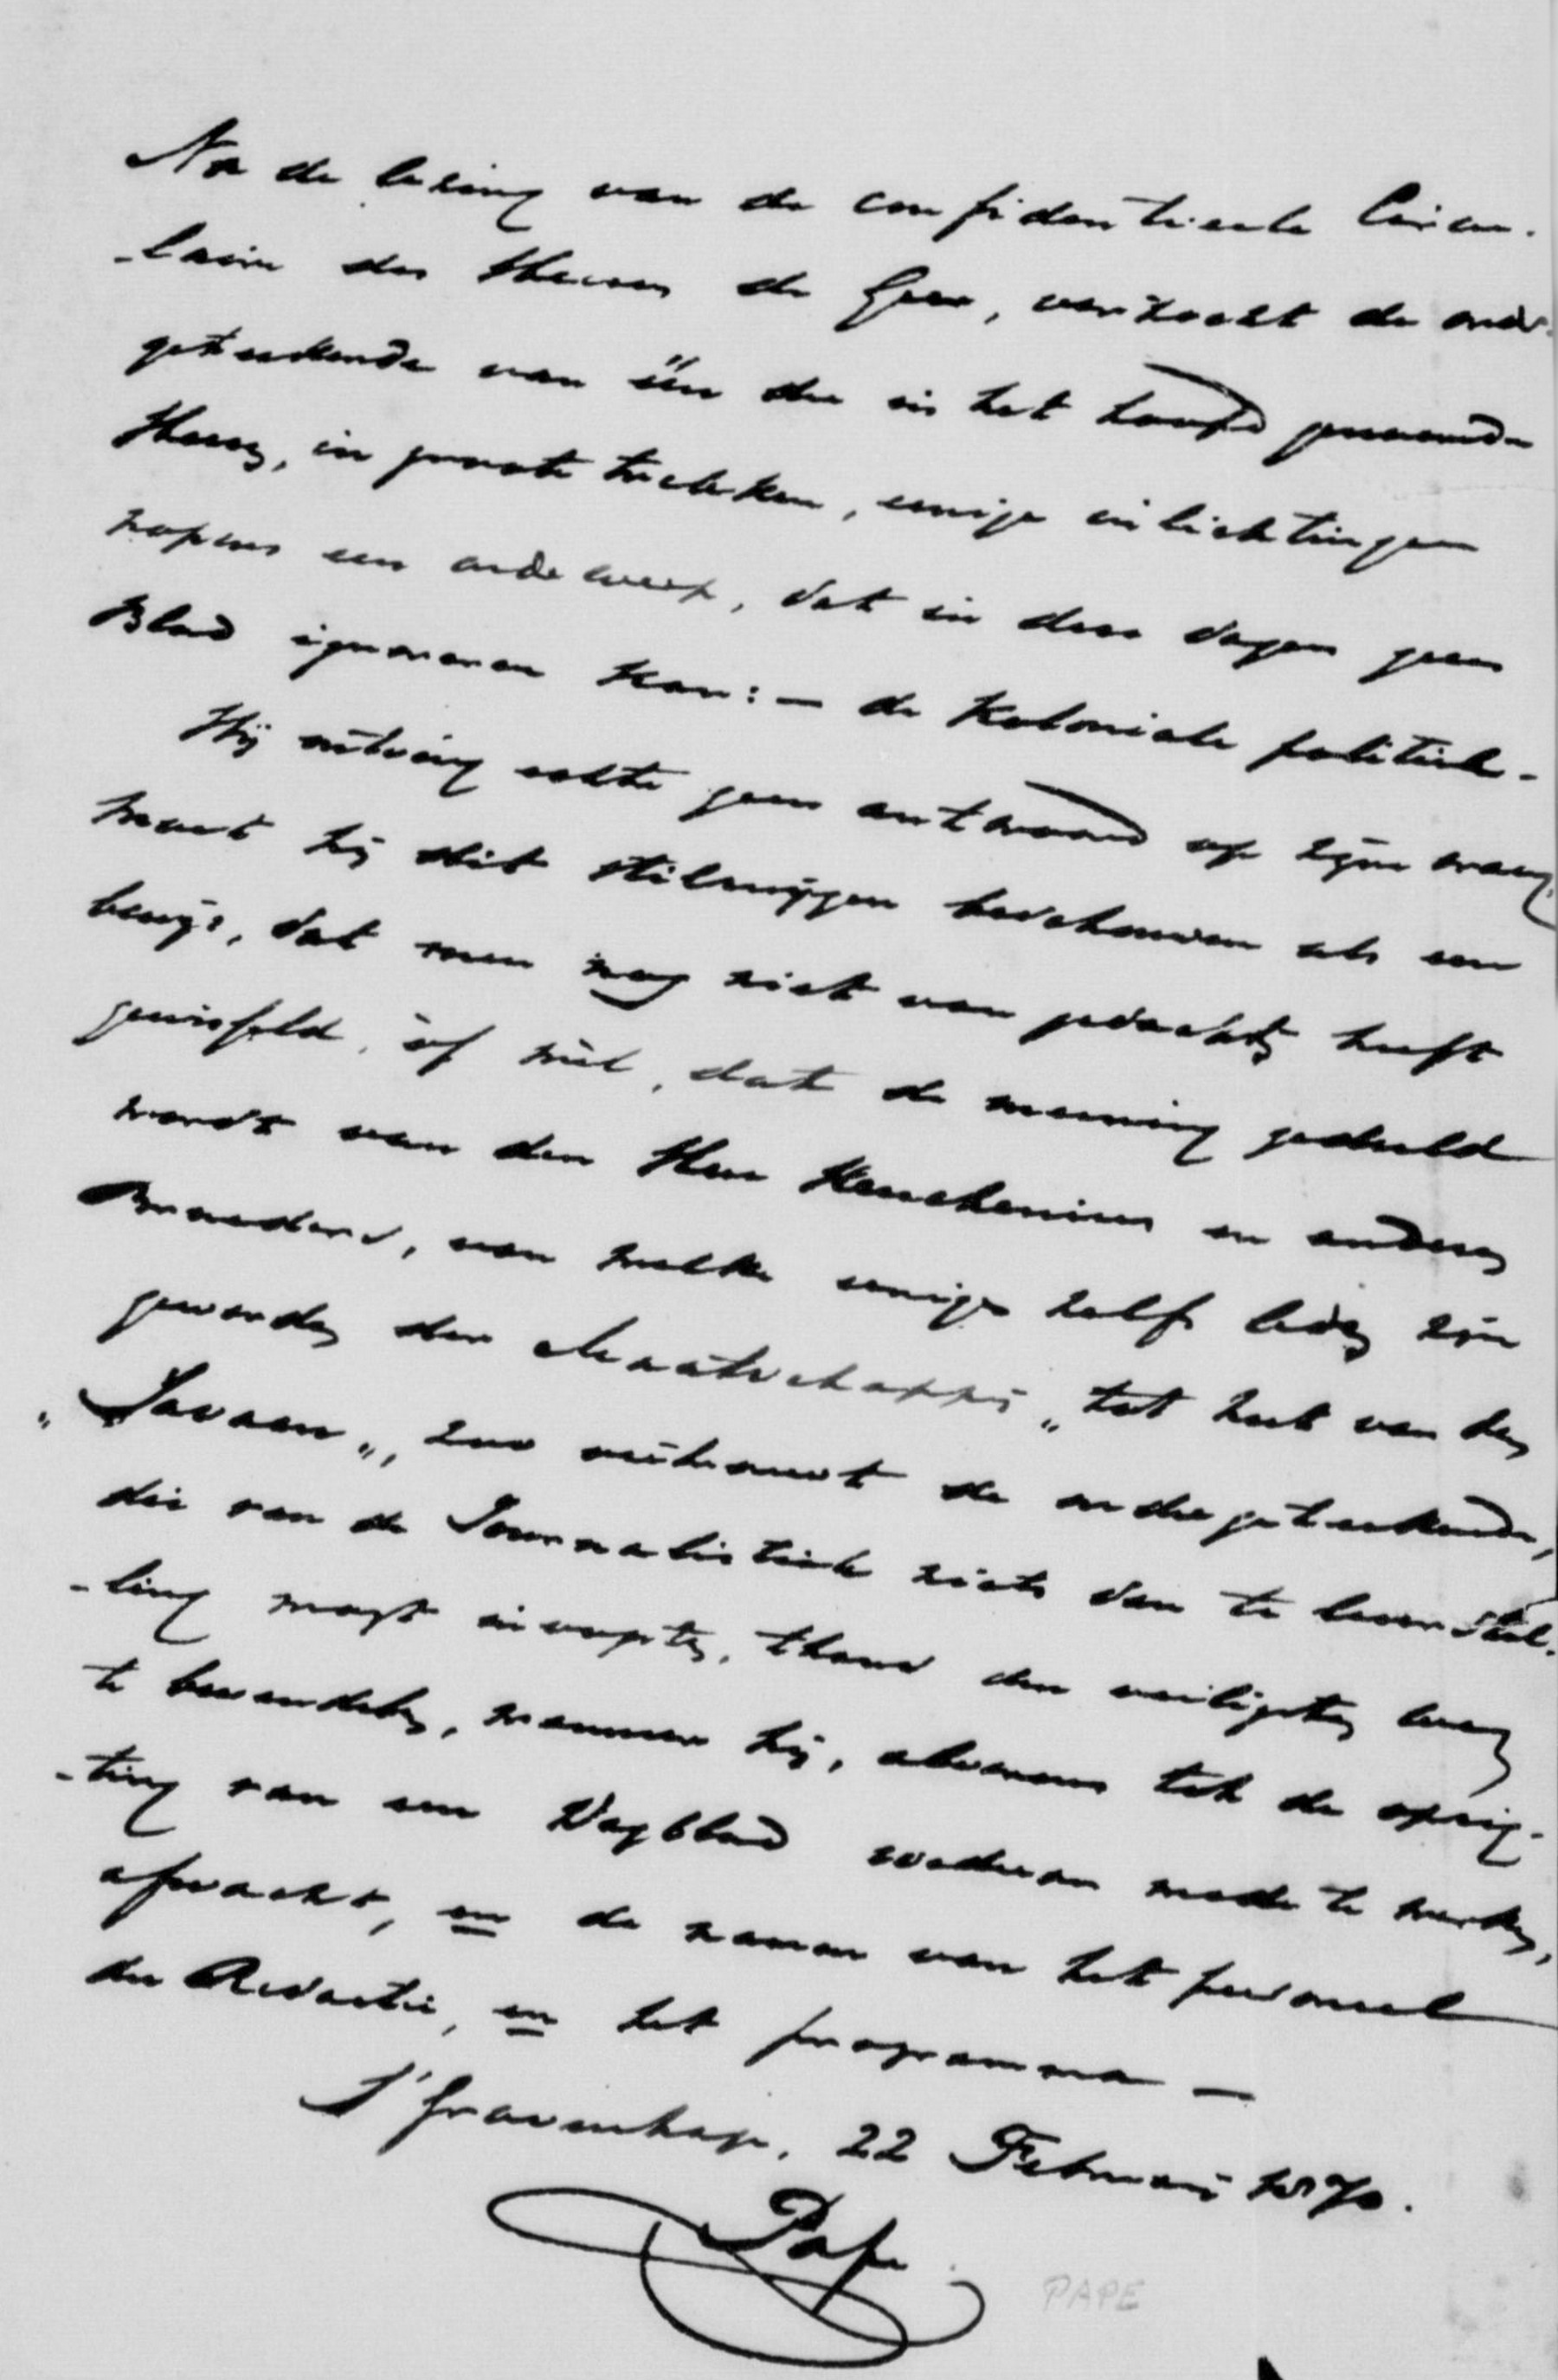 Na de lezing van de confidentieele Circu-
-laire der Heeren de Geer, verzocht de onder-
geteekende van één der in het hoofd genoemde
Heeren, in groote trekken, eenige inlichtingen
nopens een onderwerp, dat in deze dagen geen
Blad ignoreren kan: — de Koloniale politiek.
Hij ontving echter geen antwoord op zijne vraag.
moet hij dit stilzwijgen beschouwen als een
bewijs, dat men nog niet van gedachten heeft
gewisseld, òf wel, dat de meening gedeeld
wordt van den Heer Keuchenius en anderen
Broeders, van welke eenige zelfs leden zijn
geworden der Maatschappij „tot nut van den
„Javaan„, zoo vertrouwt de ondergeteekende,
die van de Journalistiek niets dan te leur stel-
-ling mogt inoogsten, thans den veiligsten weg
te bewandelen, wanneer hij, alvorens tot de oprig-
-ting van een Dagblad wederom mede te werken,
afwacht, en de namen van het personeel
der Redactie, en het programma —
S'Gravenhage, 22 Februarij 1870.
Pape
PAPE